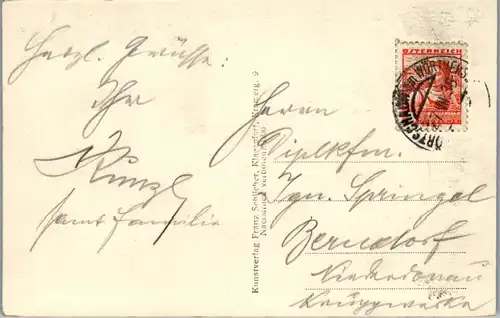 Herzl. Grüsse:
Ihr
Kunzl
samt Familie
Kunstverlag Franz Schilcher, Klagenfurt,
Nachdruck verboten
ÖSTERREICH
Herrn
Diplkfm.
Ign. Springel
Berndorf
Niederdonau
Kruppwerke